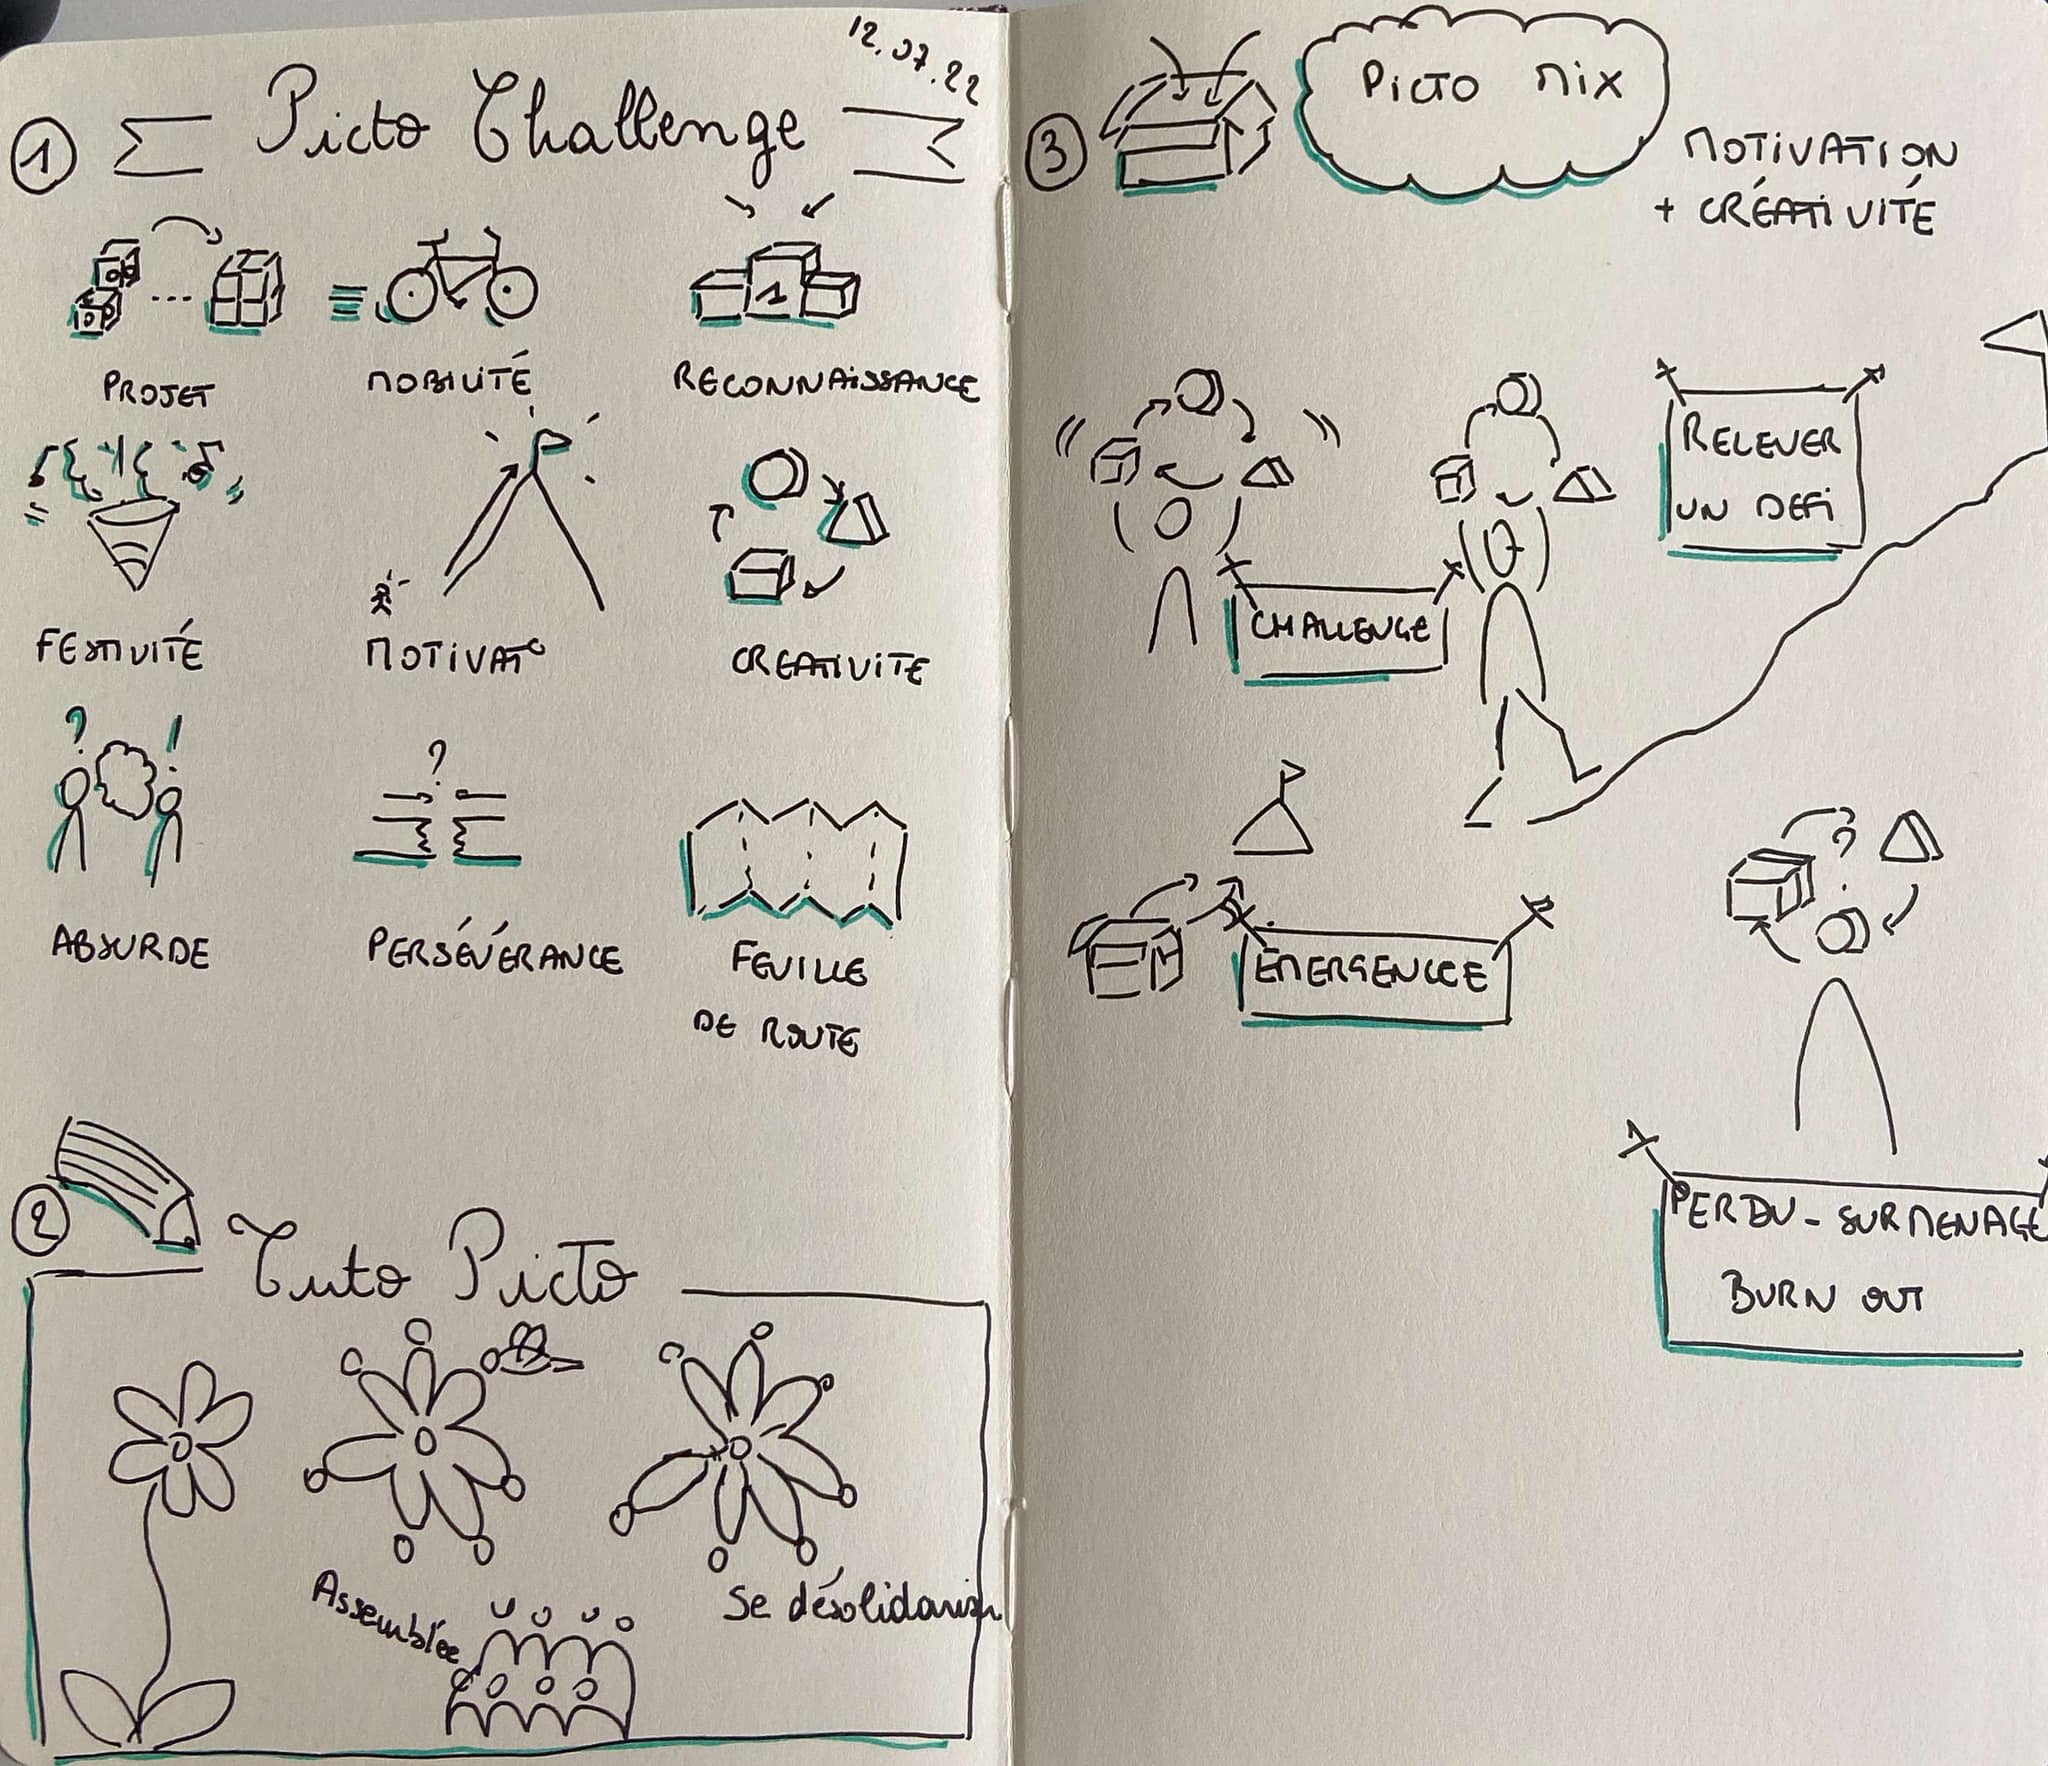 12.07.22
1 Picto Challenge
1
PROJET
MOBILITÉ
RECONNAISSANCE
FESTIVITÉ
MOTIVAT°
CREATIVITE
? !
?
ABSURDE
PERSÉVÉRANCE
FEUILLE
DE ROUTE
2 Tuto Picto
Assemblée
Se désolidariser
3 PICTO MIX
MOTIVATION
+ CRÉATIVITÉ
RELEVER
UN DEFI
CHALLENGE
?
EMERGENCCE
PERDU - SURMENAGE
BURN OUT